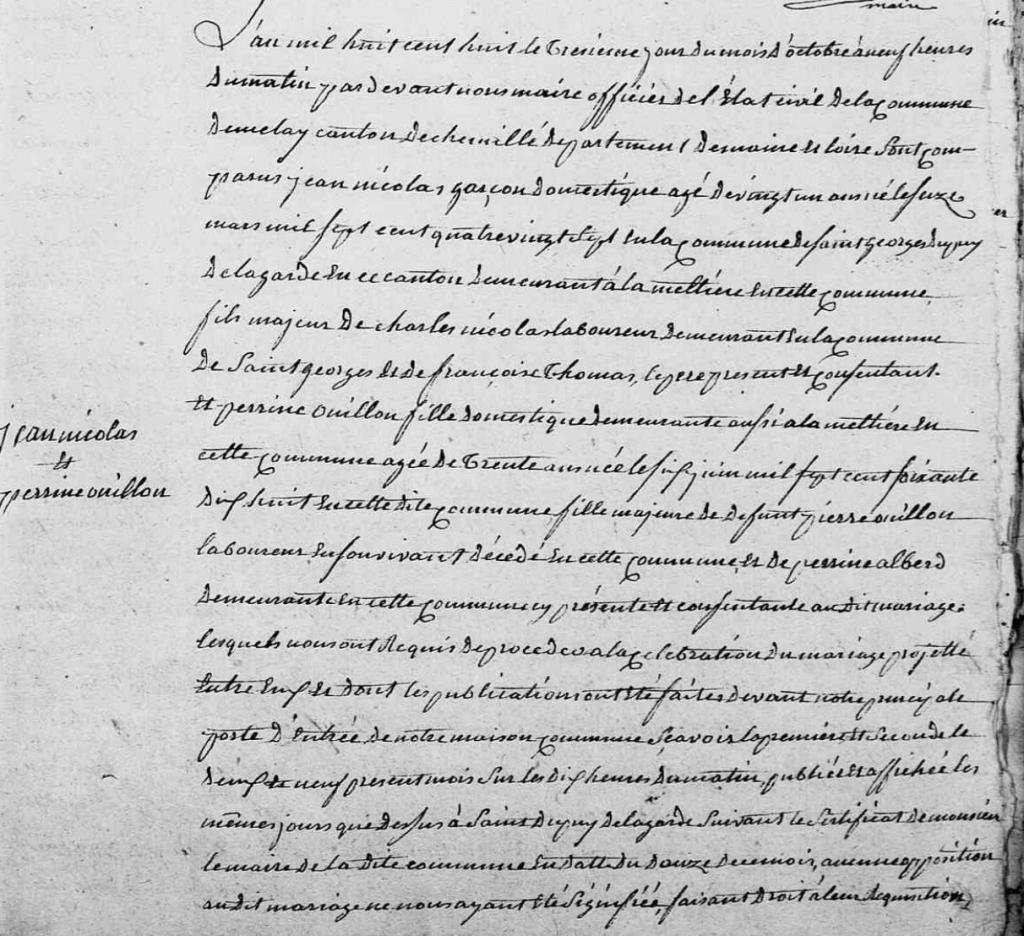 maire
L'an mil huit cent huit le tresieme jour du mois d'octobre à neuf heures
du matin par devant nous maire officier de l'état civil de la commune
de melay canton de chemillé departement de maine et loire sont com-
parus jean nicolas garçon domestique agé de vingt un ans né le seize
mars mil sept cent quatre vingt sept en la commune de saint georges du puy
de la garde en ce canton demeurant à la mettiére en cette commune,
fils majeur de charles nicolas laboureur demeurant en la commune
de Saint georges et de françoise Thomas, le pere present et consentant.
et perrine ouillon fille domestique demeurante aussi a la mettiére en
cette commune agée de trente ans née le six juin mil sept cent soixante
dix huit en cette dite commune fille majeure de defunt pierre ouillon
laboureur en son vivant décédé en cette commune, et de perrine alberd
demeurante en cette commune cy présente et consentante au dit mariage.
lesquels nous ont requis de proceder a la celebration du mariage projetté
entre eux et dont les publications ont été faites devant notre principale
porte d'entrée de notre maison commune sçavoir la premiére et seconde le
deux et neuf present mois sur les dix heures du matin, publiée et affichée les
mêmes jours que dessus à Saint du puy de la garde suivant le sertificat de monsieur
le maire de la dite commune en datte du douze de ce mois, aucune opposition
au dit mariage ne nous ayant été signifiée, faisant droit à leur requisition,
jean nicolas
et
perrine ouillon